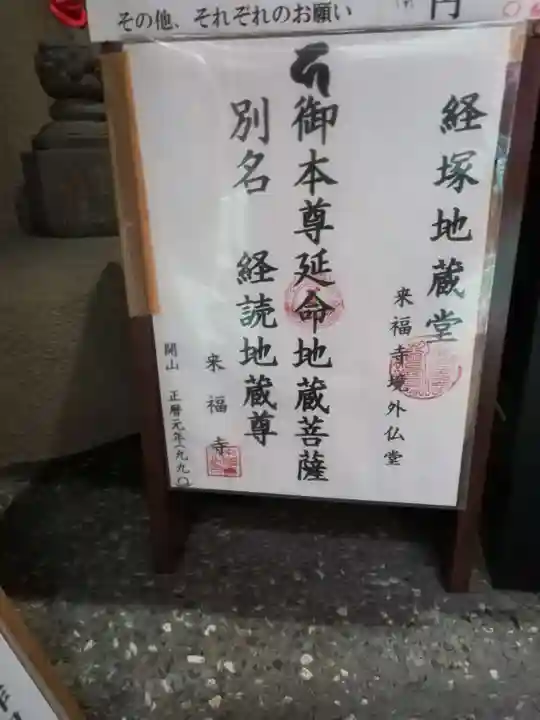 その他、それぞれのお願い
円
経塚地蔵堂
来福寺境外仏堂
御本尊延命地蔵菩薩
別名 経読地蔵尊
来福寺
開山 正暦元年(九九〇